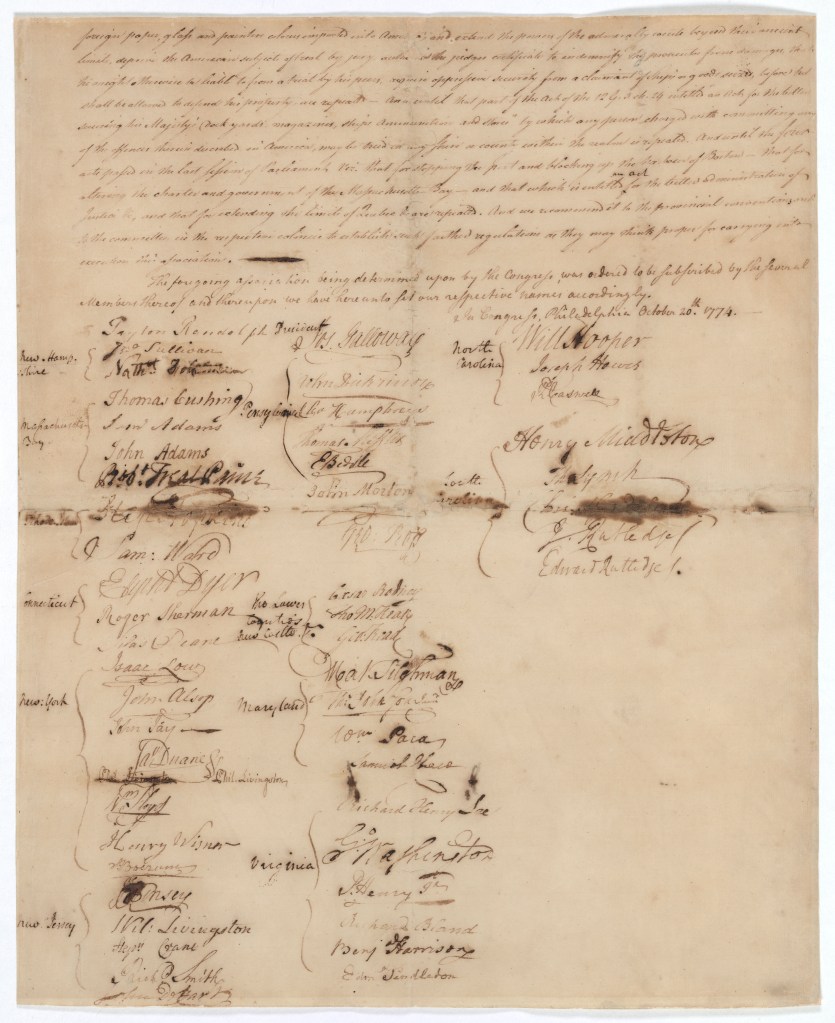 foreign paper, glass and painters colours imported into America, and extend the powers of the admiralty courts beyond their ancient
limits, deprive the American subjects of trial by jury, authorise the judges certificate to indemnify the prosecutor from damages that
he might otherwise be liable to from a trial by his peers, require oppressive security from a claimant of ships or goods seized, before he
shall be allowed to defend his property, are repealed — And until that part of the Act of the 12 G. 3. ch. 24 entitled an Act for the better
securing his Majesty's dock yards, magazines, ships, Ammunition and stores by which any person charged with committing any
of the offences therein described in America, may be tried in any shire or county within the realm is repealed. And until the four
acts passed in the last session of Parliament Viz. that for stopping the port and blocking up the harbour of Boston — that for
altering the charter and government of the Massachusetts-Bay — and that which is entitled an act for the better administration of
Justice &c, and that for extending the limits of Quebec &c are repealed. And we recommend it to the provincial conventions, and
to the committees in the respective colonies to establish such farther regulations as they may think proper for carrying into
execution this Association.
The foregoing association being determined upon by the Congress, was ordered to be subscribed by the several
Members thereof and thereupon we have hereunto set our respective names accordingly.
In Congress, Philadelphia October 20.th 1774.
Peyton Randolph President
New-Hampshire
Jno Sullivan
Nath.l Folsom
Massachusetts Bay
Thomas Cushing
Sam Adams
John Adams
Rob.t Treat Paine
Sam: Ward
Connecticut
Elipht Dyer
Roger Sherman
Silas Deane
New-York
Isaac Low
John Alsop
John Jay
Jas Duane
Phil. Livingston
Wm Floyd
Henry Wisner
S Boerum
New Jersey
J Kinsey
Wil: Livingston
Stepn Crane
Richd Smith
John De Hart
Pensylvania
Jos. Galloway
John Dickinson
Cha Humphreys
Thomas Mifflin
E Biddle
John Morton
Geo: Ross
The Lower Counties New Castle &c.
Cæsar Rodney
Tho M:Kean
Geo: Read
Maryland
Mat Tilghman
Ths Johnson Junr
Wm Paca
Samuel Chase
Virginia
Richard Henry Lee
Go Washington
P. Henry Jr
Richard Bland
Benj Harrison
Edmd Pendleton
North Carolina
Will Hooper
Joseph Hewes
R Caswell
South Carolina
Henry Middleton
Tho Lynch
J. Rutledge
Edward Rutledge